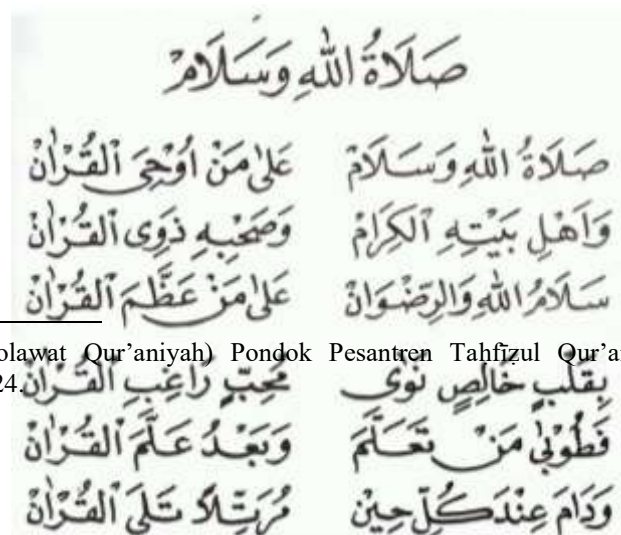 صَلَاةُ اللهِ وَسَلَامْ
صَلَاةُ اللهِ وَسَلَامْ عَلٰى مَنْ اُوْحِيَ الْقُرْاٰنْ
وَاَهْلِ بَيْتِهِ الْكِرَامْ وَصَحْبِهِ ذَوِى الْقُرْاٰنْ
سَلَامُ اللهِ وَالرِّضْوَانْ عَلٰى مَنْ عَظَّمَ الْقُرْاٰنْ
olawat Qur'aniyah) Pondok Pesantren Tahfīzul Qur'a
24.
بِقَلْبٍ خَالِصٍ نَوٰى مُحِبٍّ رَاغِبِ الْقُرْاٰنْ
فَطُوْبٰى مَنْ تَعَلَّمَ وَبَعْدُ عَلَّمَ الْقُرْاٰنْ
وَدَامَ عِنْدَ كُلِّ حِيْنْ مُرَتِّلًا تَلَى الْقُرْاٰنْ